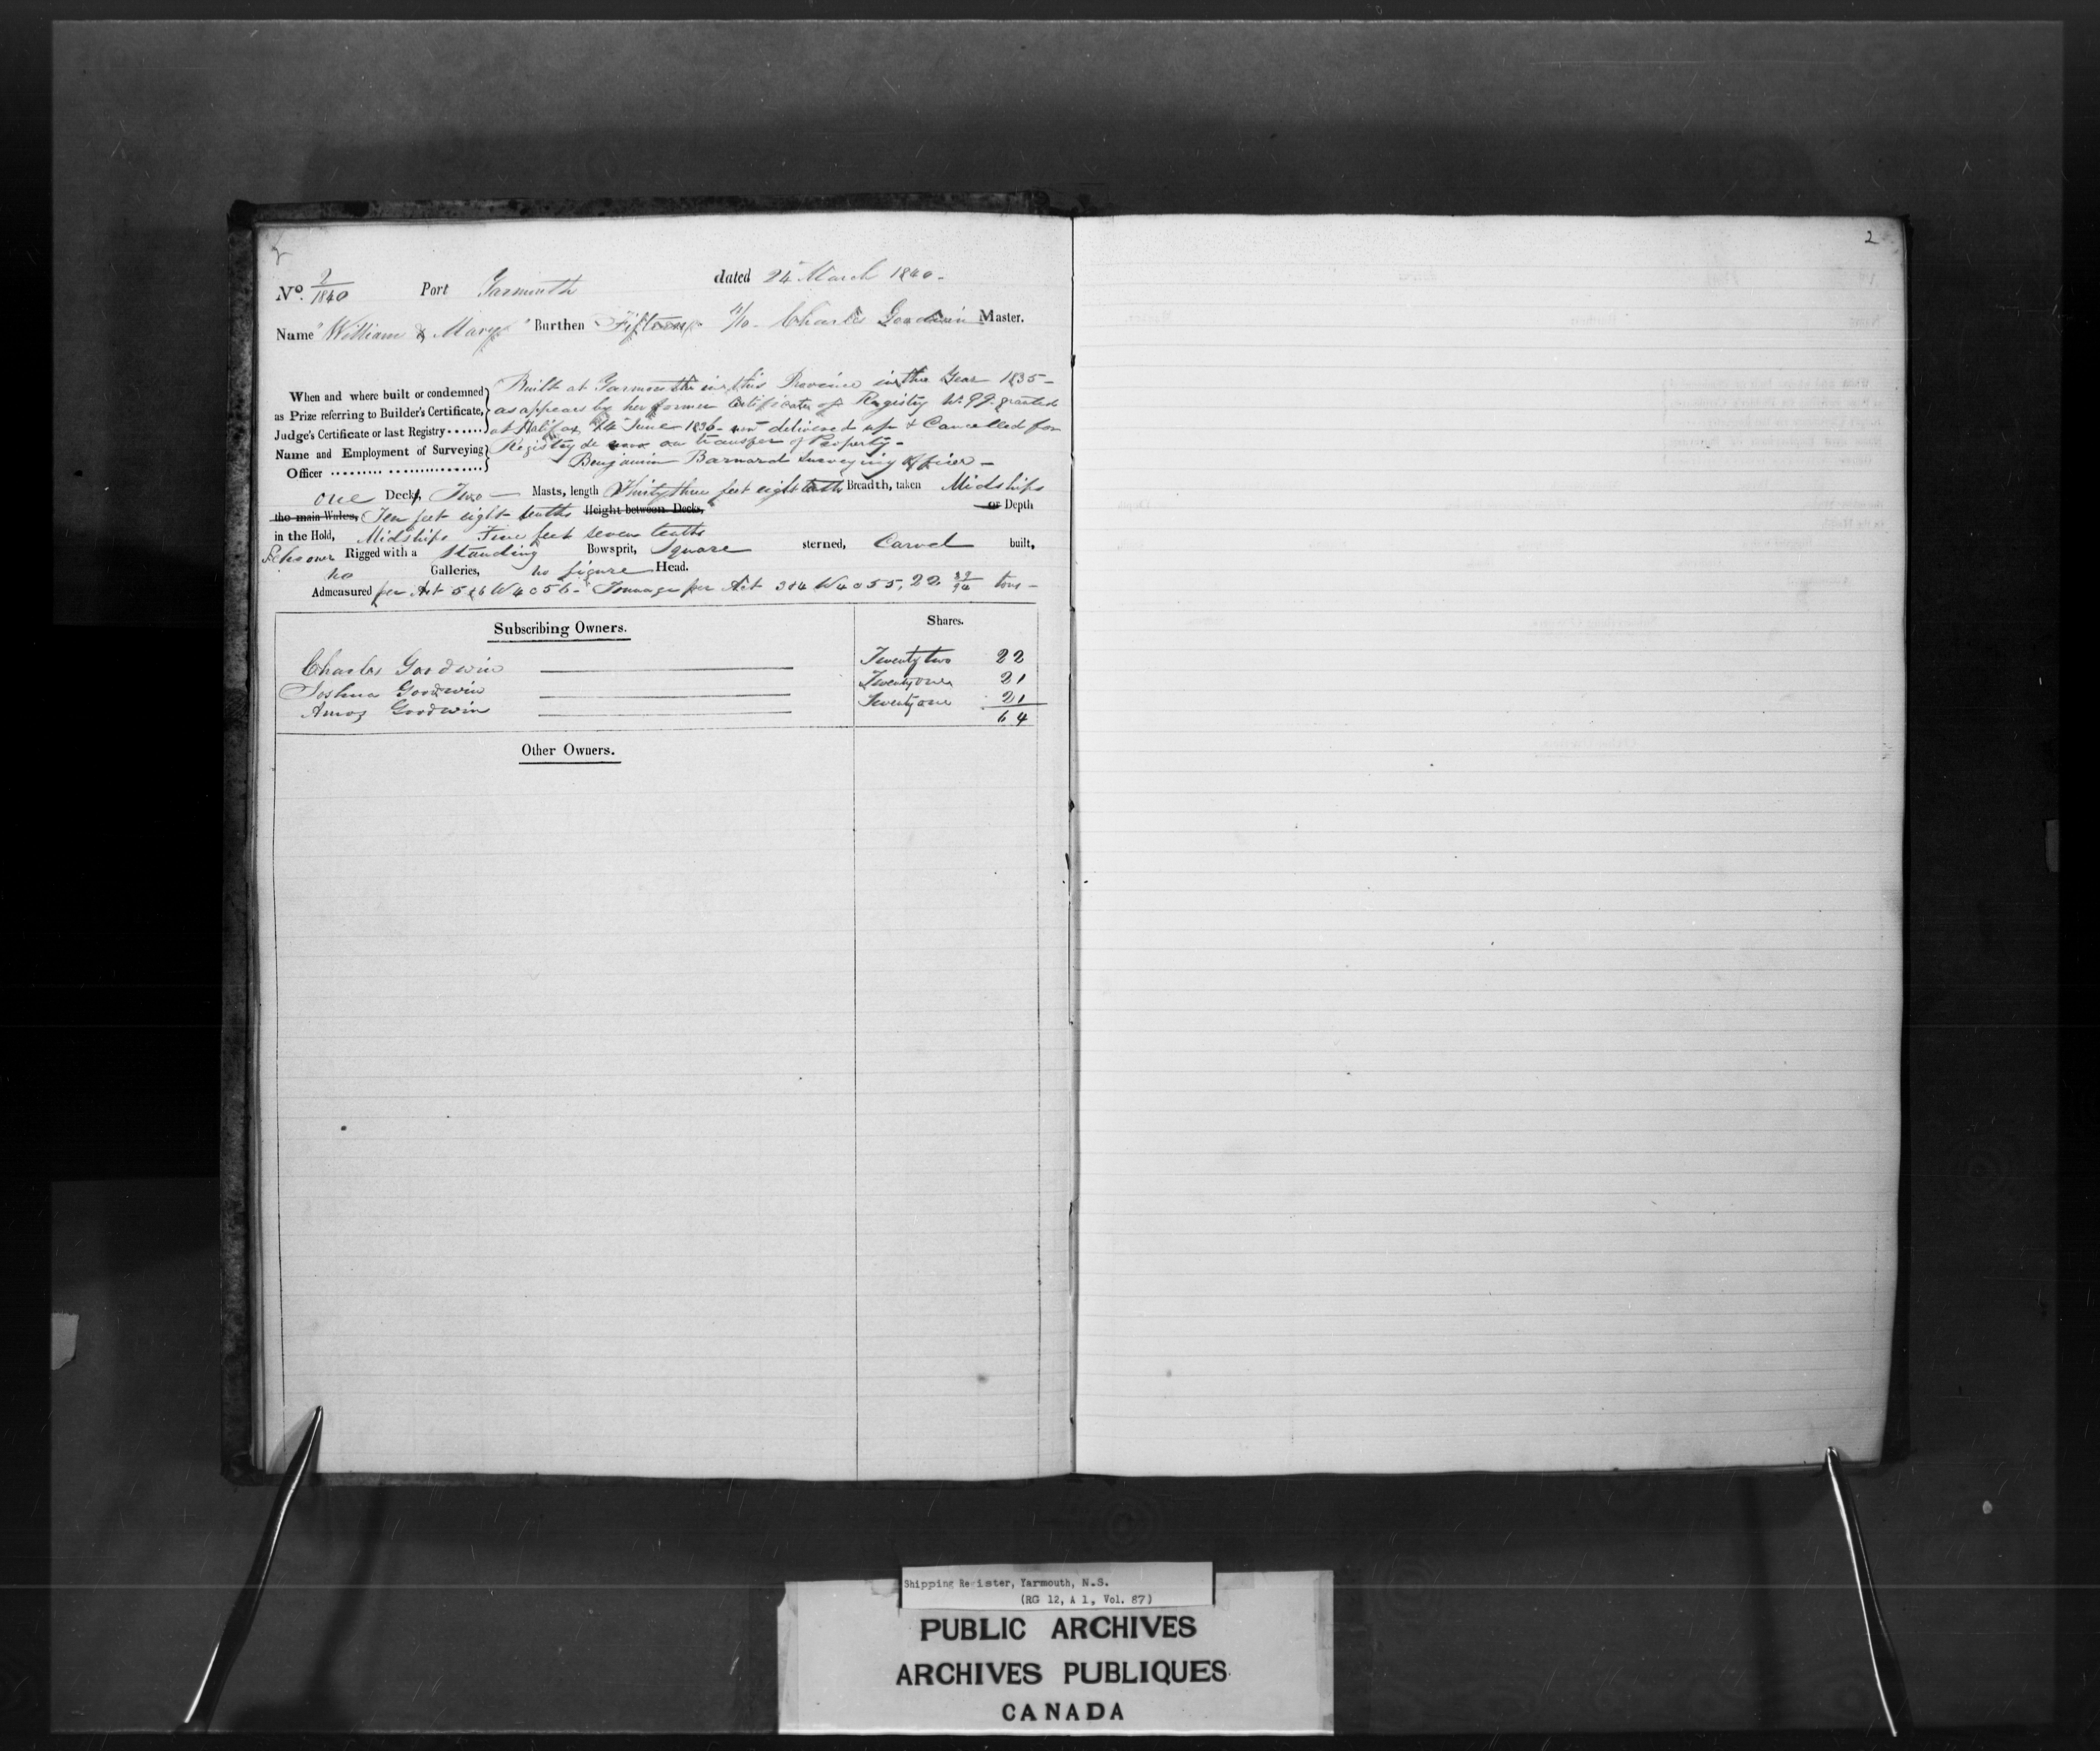 2
2
No. 2/1840 Port Yarmouth dated 24 March 1840 -
Name "William & Mary" Burthen Fifteen 4/10 - Charles Goodwin Master.
When and where built or condemned Built at Yarmouth in this Province in the Year 1835 -
as Prize referring to Builder's Certificate, as appears by her former Certificate of Registry No. 99 granted
Judge's Certificate or last Registry ...... at Halifax 14 June 1836 - now delivered up & Cancelled for
Name and Employment of Surveying Registry de novo on transfer of Property -
Officer ......... ................. Benjamin Barnard Surveying Officer -
one Deck, Two — Masts, length Thirty three feet eight tenths Breadth, taken Midships
the main Wales, Ten feet eight tenths Height between Decks, or Depth
in the Hold, Midships Five feet seven tenths
Schooner Rigged with a Standing Bowsprit, Square sterned, Carvel built,
no Galleries, no figure Head.
Admeasured per Act 5 & 6 W 4 c 56 - Tonnage per Act 3 & 4 W 4 c 55, 22 /94 tons -
Subscribing Owners. Shares.
Charles Goodwin Twenty two 22
Joshua Goodwin Twenty one 21
Amos Goodwin Twenty one 21
64
Other Owners.
Shipping Register, Yarmouth, N.S.
(RG 12, A 1, Vol. 87)
PUBLIC ARCHIVES
ARCHIVES PUBLIQUES
CANADA